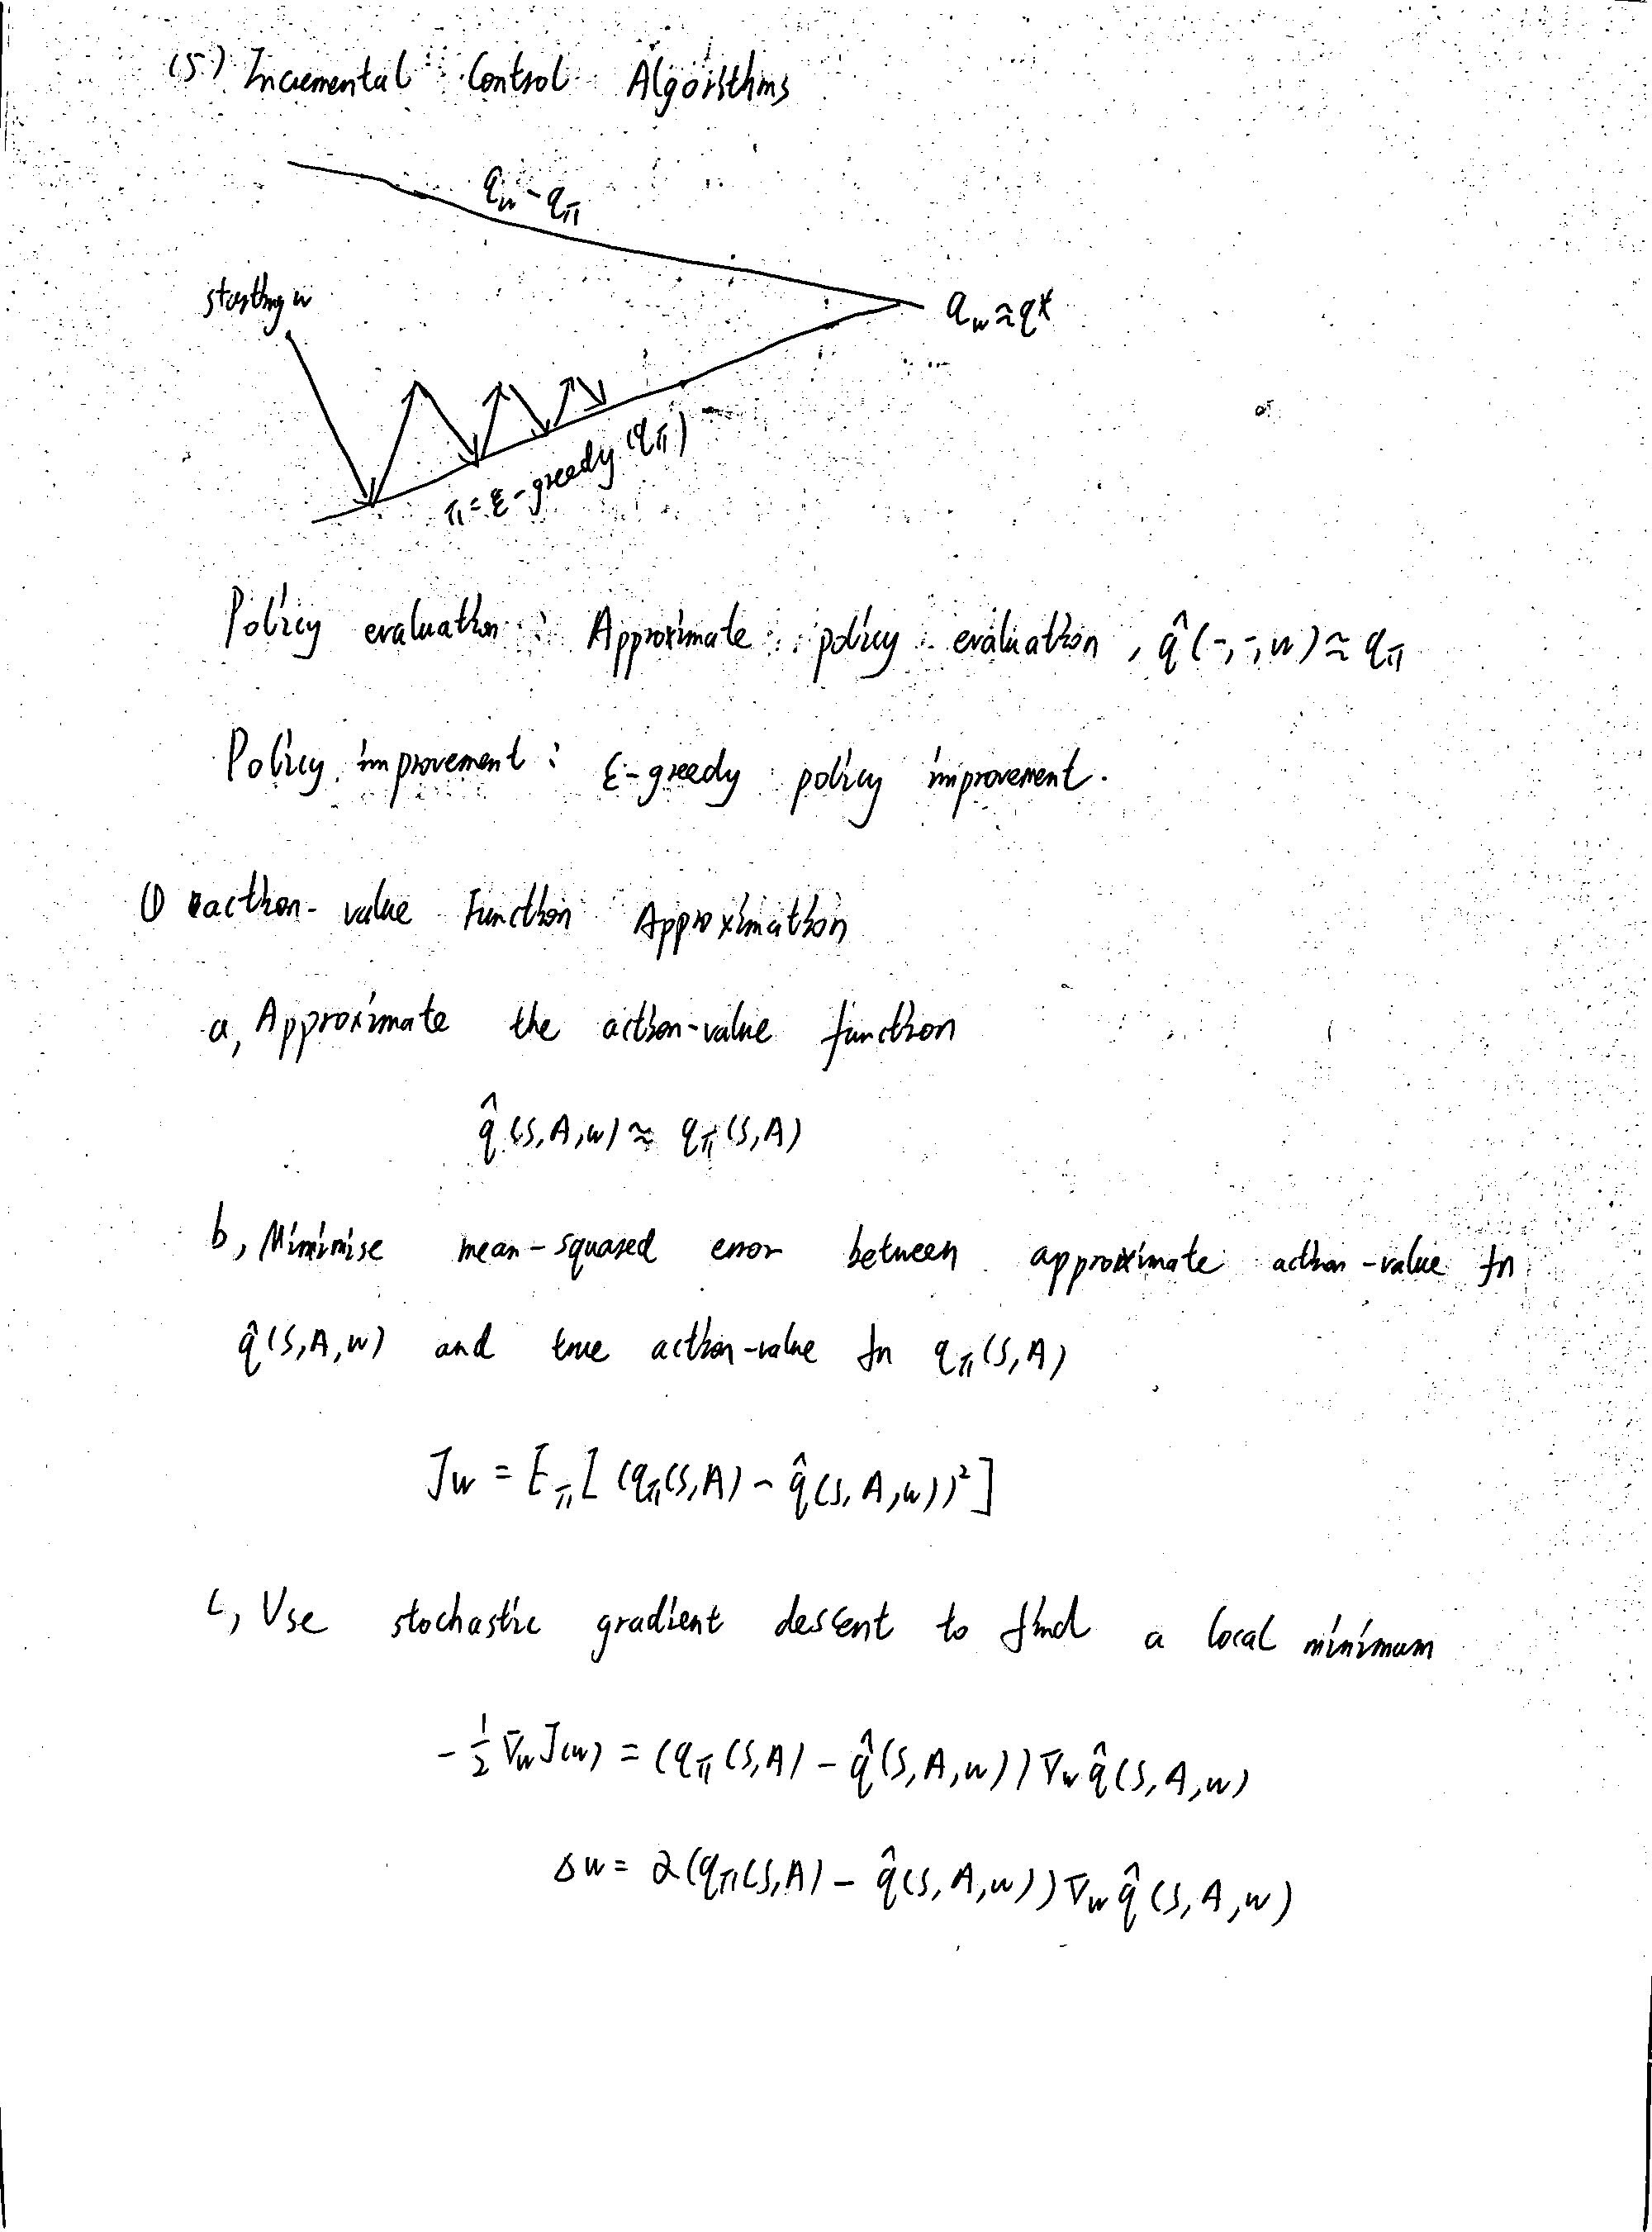 (5) Incremental Control Algorithms
q_w = q_π
starting w
q_w ≈ q*
π = ε-greedy (q_π)
Policy evaluation : Approximate policy evaluation , q̂(-,-,w) ≈ q_π
Policy improvement : ε-greedy policy improvement.
① action-value Function Approximation
a, Approximate the action-value function
q̂(S,A,w) ≈ q_π(S,A)
b, Minimise mean-squared error between approximate action-value fn
q̂(S,A,w) and true action-value fn q_π(S,A)
Jw = E_π[(q_π(S,A) - q̂(S,A,w))²]
c, Use stochastic gradient descent to find a local minimum
-½ ∇_w J(w) = (q_π(S,A) - q̂(S,A,w)) ∇_w q̂(S,A,w)
Δw = α(q_π(S,A) - q̂(S,A,w)) ∇_w q̂(S,A,w)